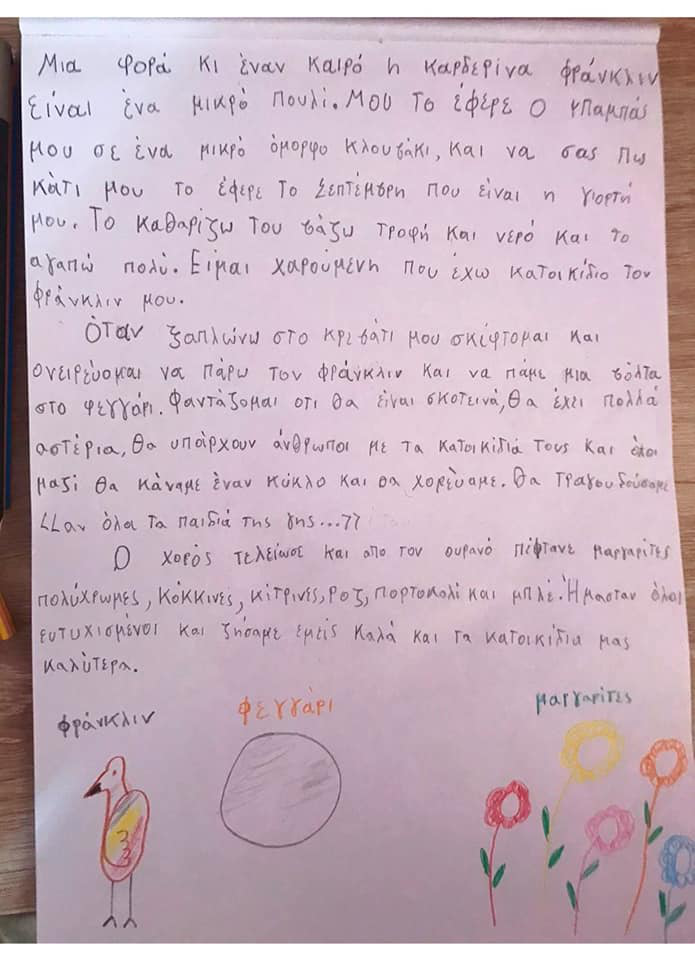 Μια φορά κι έναν καιρό η καρδερίνα φράνκλιν
είναι ένα μικρό πουλί. Μου το έφερε ο μπαμπάς
μου σε ένα μικρό όμορφο κλουβάκι, και να σας πω
κάτι μου το έφερε το Σεπτέμβρη που είναι η γιορτή
μου. Το καθαρίζω του βάζω τροφή και νερό και το
αγαπώ πολύ. Ειμαι χαρούμενη που έχω κατοικίδιο τον
φράνκλιν μου.
Όταν ξαπλώνω στο κρεβάτι μου σκέφτομαι και
ονειρεύομαι να πάρω τον φράνκλιν και να πάμε μια βόλτα
στο φεγγάρι. Φαντάζομαι οτι θα είναι σκοτεινά, θα έχει πολλά
αστέρια, θα υπάρχουν άνθρωποι με τα κατοικίδιά τους και όλοι
μαζί θα κάναμε έναν κύκλο και θα χορεύαμε. Θα τραγουδούσαμε
<<αν όλα τα παιδιά της γης...>>
Ο χορός τελείωσε και απο τον ουρανό πέφτανε μαργαρίτες
πολύχρωμες, κόκκινες, κίτρινες, ροζ, πορτοκαλί και μπλέ. Ήμασταν όλοι
ευτυχισμένοι και ζήσαμε εμείς καλά και τα κατοικίδια μας
καλύτερα.
φράνκλιν
φεγγάρι
μαργαρίτες